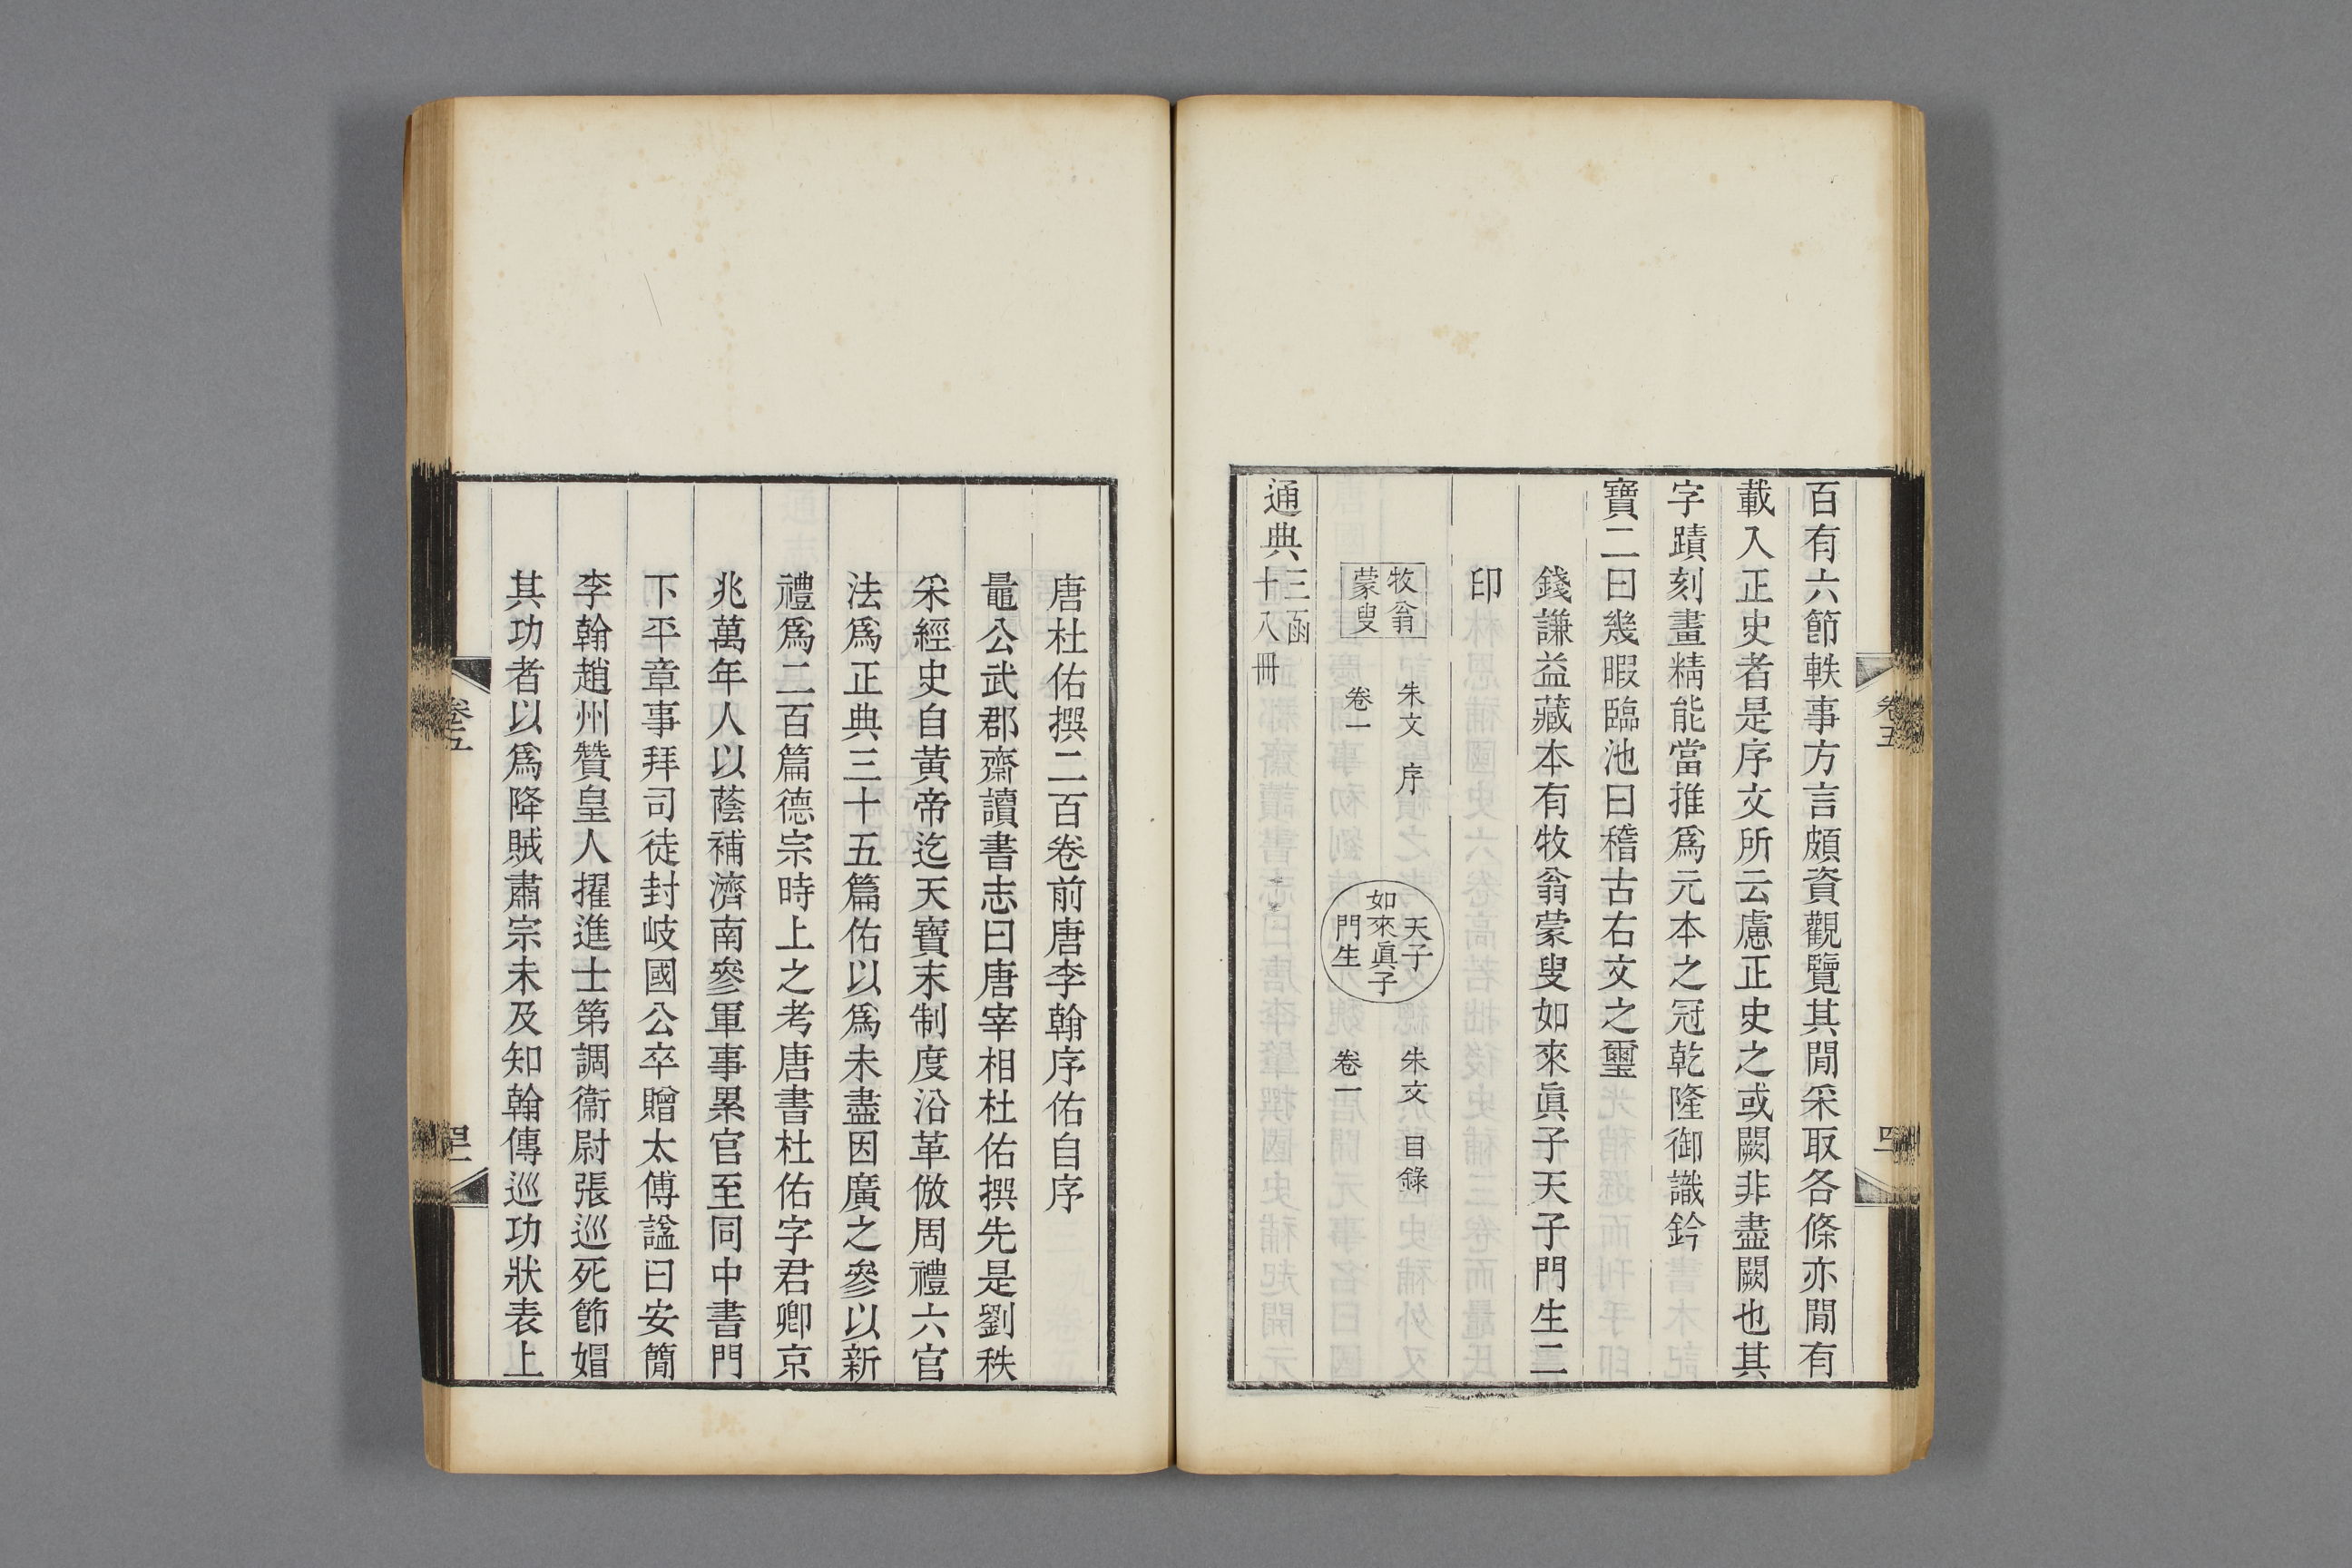 百有六節軼事方言頗資觀覽其閒采取各條亦閒有
載入正史者是序文所云慮正史之或闕非盡闕也其
字蹟刻畫精能當推爲元本之冠乾隆御識鈐
寶二曰幾暇臨池曰稽古右文之璽
錢謙益藏本有牧翁蒙叟如來眞子天子門生二
印
牧翁
蒙叟
朱文 序
卷一
天子
如來眞子
門生
朱文 目錄
卷一
通典三函
十八冊
卷五
唐杜佑撰二百卷前唐李翰序佑自序
鼂公武郡齋讀書志曰唐宰相杜佑撰先是劉秩
采經史自黃帝迄天寶末制度沿革倣周禮六官
法爲正典三十五篇佑以爲未盡因廣之參以新
禮爲二百篇德宗時上之考唐書杜佑字君卿京
兆萬年人以蔭補濟南參軍事累官至同中書門
下平章事拜司徒封岐國公卒贈太傅諡曰安簡
李翰趙州贊皇人擢進士第調衞尉張巡死節媢
其功者以爲降賊肅宗未及知翰傳巡功狀表上
卷五